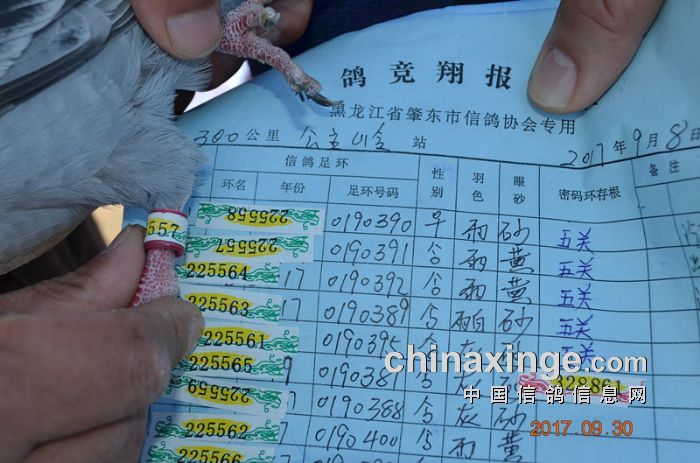 鸽竞翔报
黑龙江省肇东市信鸽协会专用
300公里 公主岭 站 2017年9月8日
信鸽足环 性别 羽色 眼砂 密码环存根 备注
环名 年份 足环号码
225558 0190390 雨 砂 五关
557
225557 0190391 雨 黄 五关
225564 17 0190392 雨 黄 五关
225563 17 0190389 砂 五关
225561 17 0190395 灰 黄 五关
225565 0190381 灰 砂 32886
225559 7 0190388 灰 砂
225562 7 0190400 雨 黄
225566
chinaxinge.com
中国信鸽信息网
2017.09.30